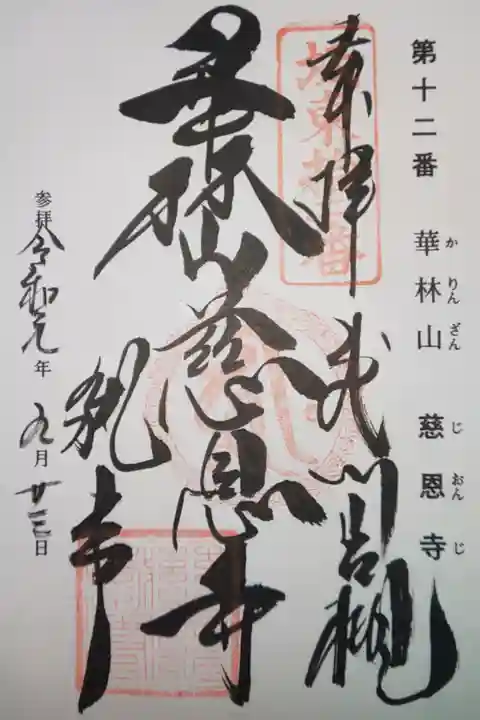 第十二番 華林山 慈恩寺
かりんざん じおんじ
奉拝 武州岩槻
坂東拾二番
華林山慈恩寺
執事
参拝令和元年九月廿三日